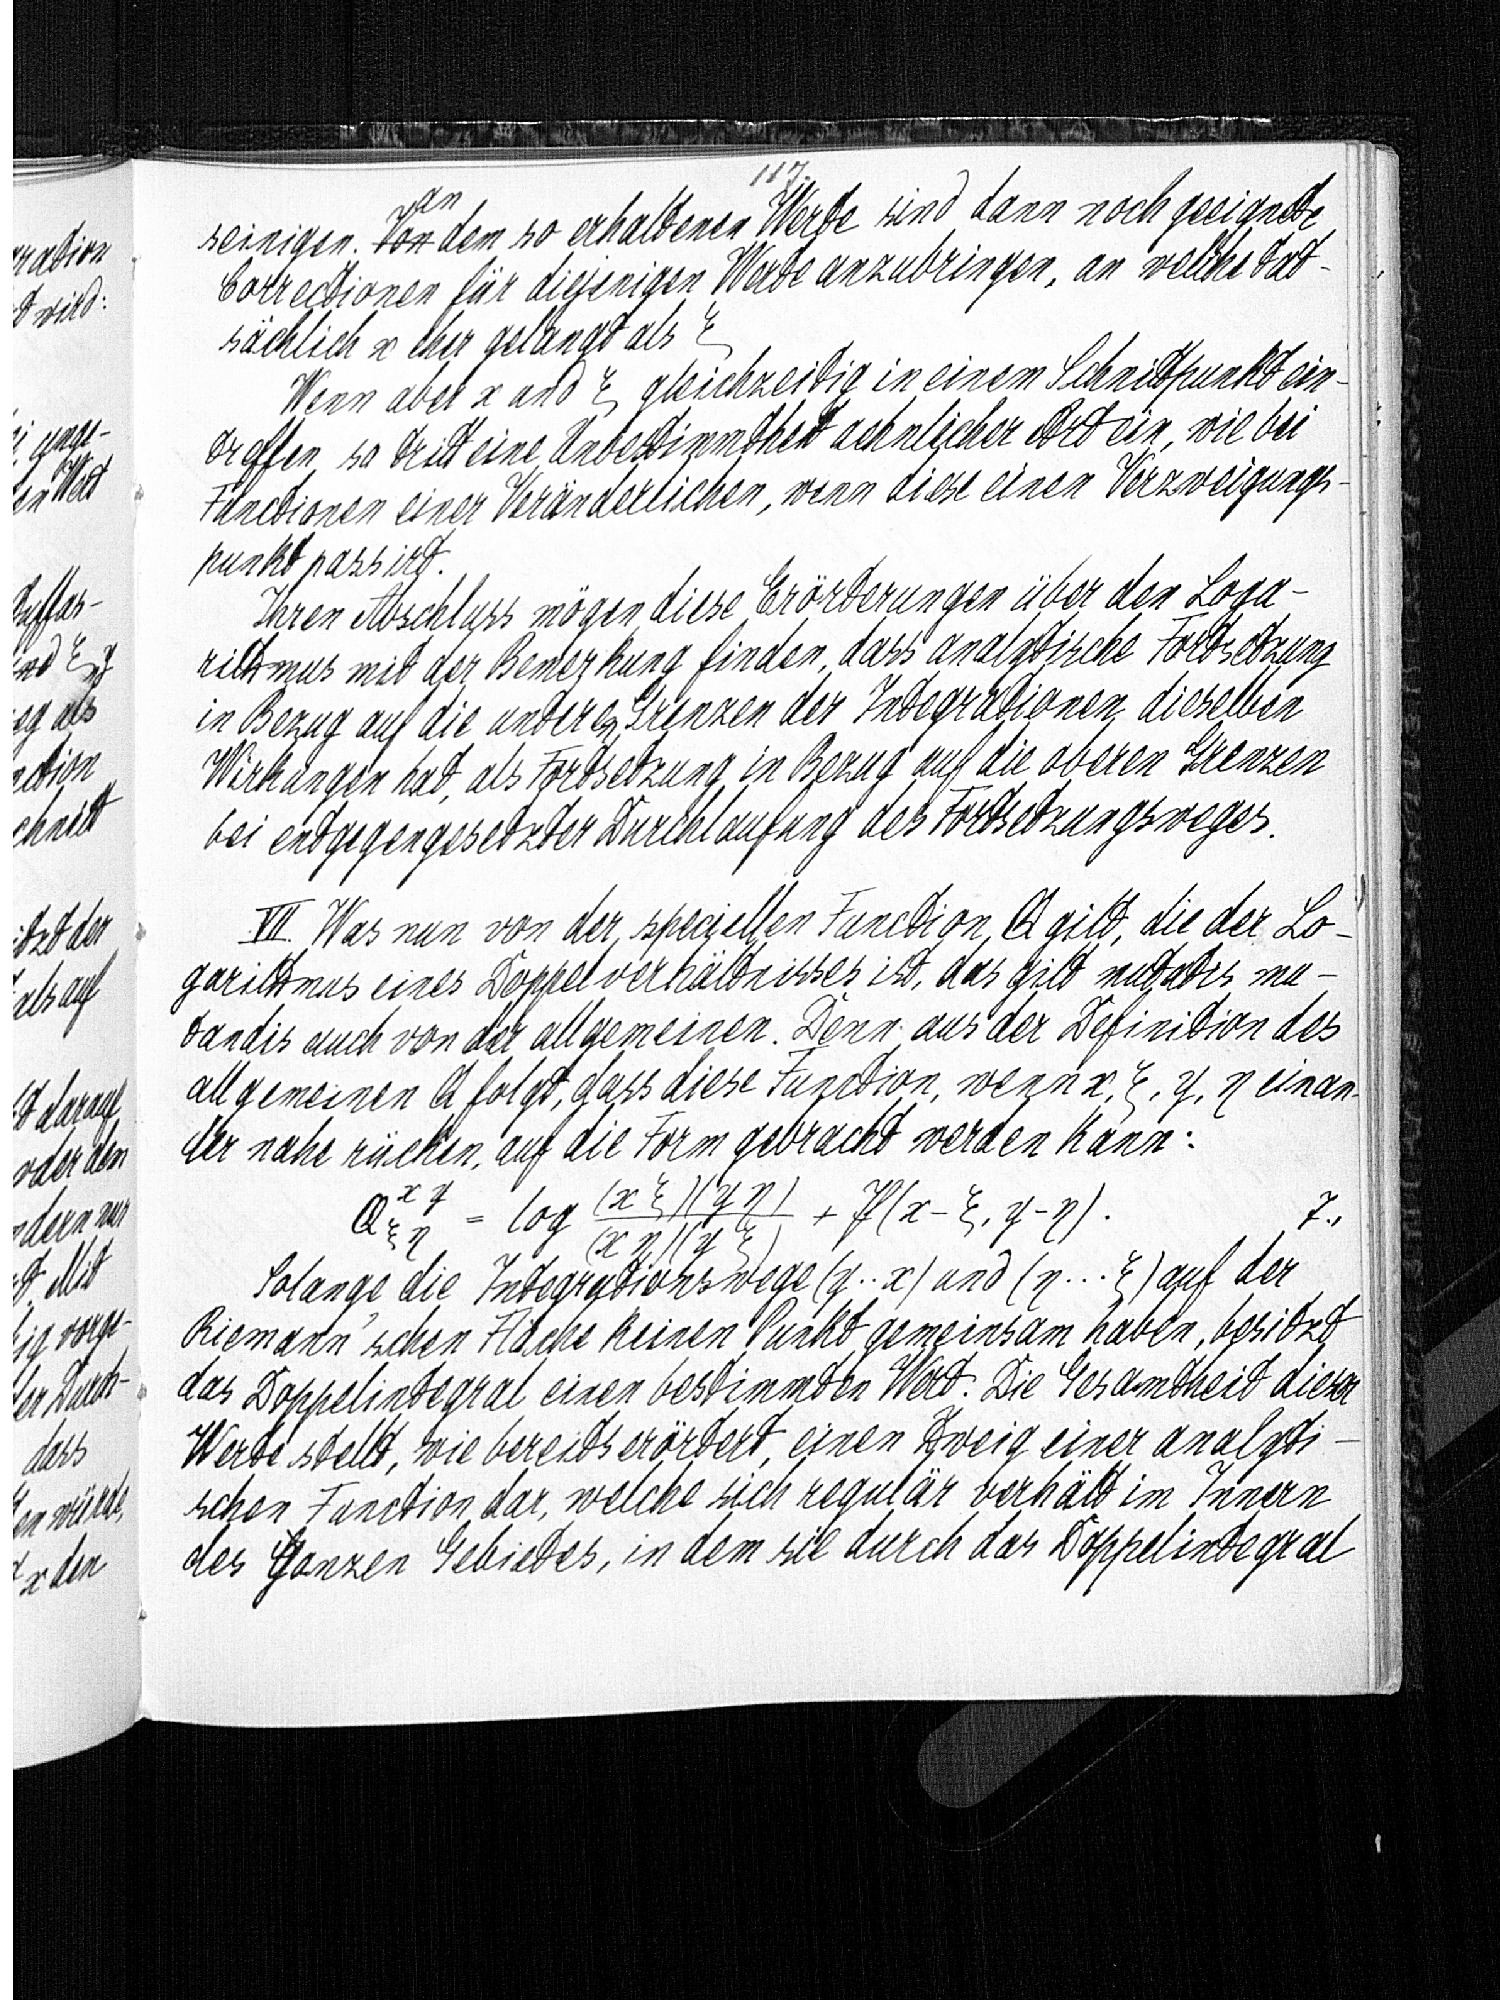 ration
t wird:
unge-
en Wert
Auffas-
und ξ, y
eg als
nction
chnitt
itzt der
als auf
t darauf
oder dem
ndern nur
t. Mit
ig vorge-
der Durch-
dass
en würde,
x den
117.
an
seinigen. Von dem so erhaltenen Werte sind dann noch geeignete
Correctionen für diejenigen Werte anzubringen, an welche tat-
sächlich x eher gelangt als ξ
Wenn aber x und ξ gleichzeitig in einem Schnittpunkt ein-
treffen, so tritt eine Unbestimmtheit aehnlicher Art ein, wie bei
Functionen einer Veränderlichen, wenn diese einen Verzweigungs-
punkt passirt.
Ihren Abschluss mögen diese Erörterungen über den Loga-
rithmus mit der Bemerkung finden, dass analytische Fortsetzung
in Bezug auf die unteren Grenzen der Integrationen dieselben
Wirkungen hat, als Fortsetzung in Bezug auf die oberen Grenzen
bei entgegengesetzter Durchlaufung des Fortsetzungsweges.
VII. Was nun von der speciellen Function Q gilt, die der Lo-
garithmus eines Doppelverhältnisses ist, das gilt mutatis mu-
tandis auch von der allgemeinen. Denn aus der Definition des
allgemeinen Q folgt, dass diese Function, wenn x, ξ, y, η einan-
der nahe rücken, auf die Form gebracht werden kann:
Q^{x y}_{ξ η} = log (x ξ)(y η) / (x η)(y ξ) + P(x - ξ, y - η). 7.,
Solange die Integrationswege (y..x) und (η...ξ) auf der
Riemann'schen Fläche keinen Punkt gemeinsam haben, besitzt
das Doppelintegral einen bestimmten Wert. Die Gesamtheit dieser
Werte stellt, wie bereits erörtert, einen Zweig einer analyti-
schen Function dar, welche sich regulär verhält im Innern
des Ganzen Gebietes, in dem sie durch das Doppelintegral